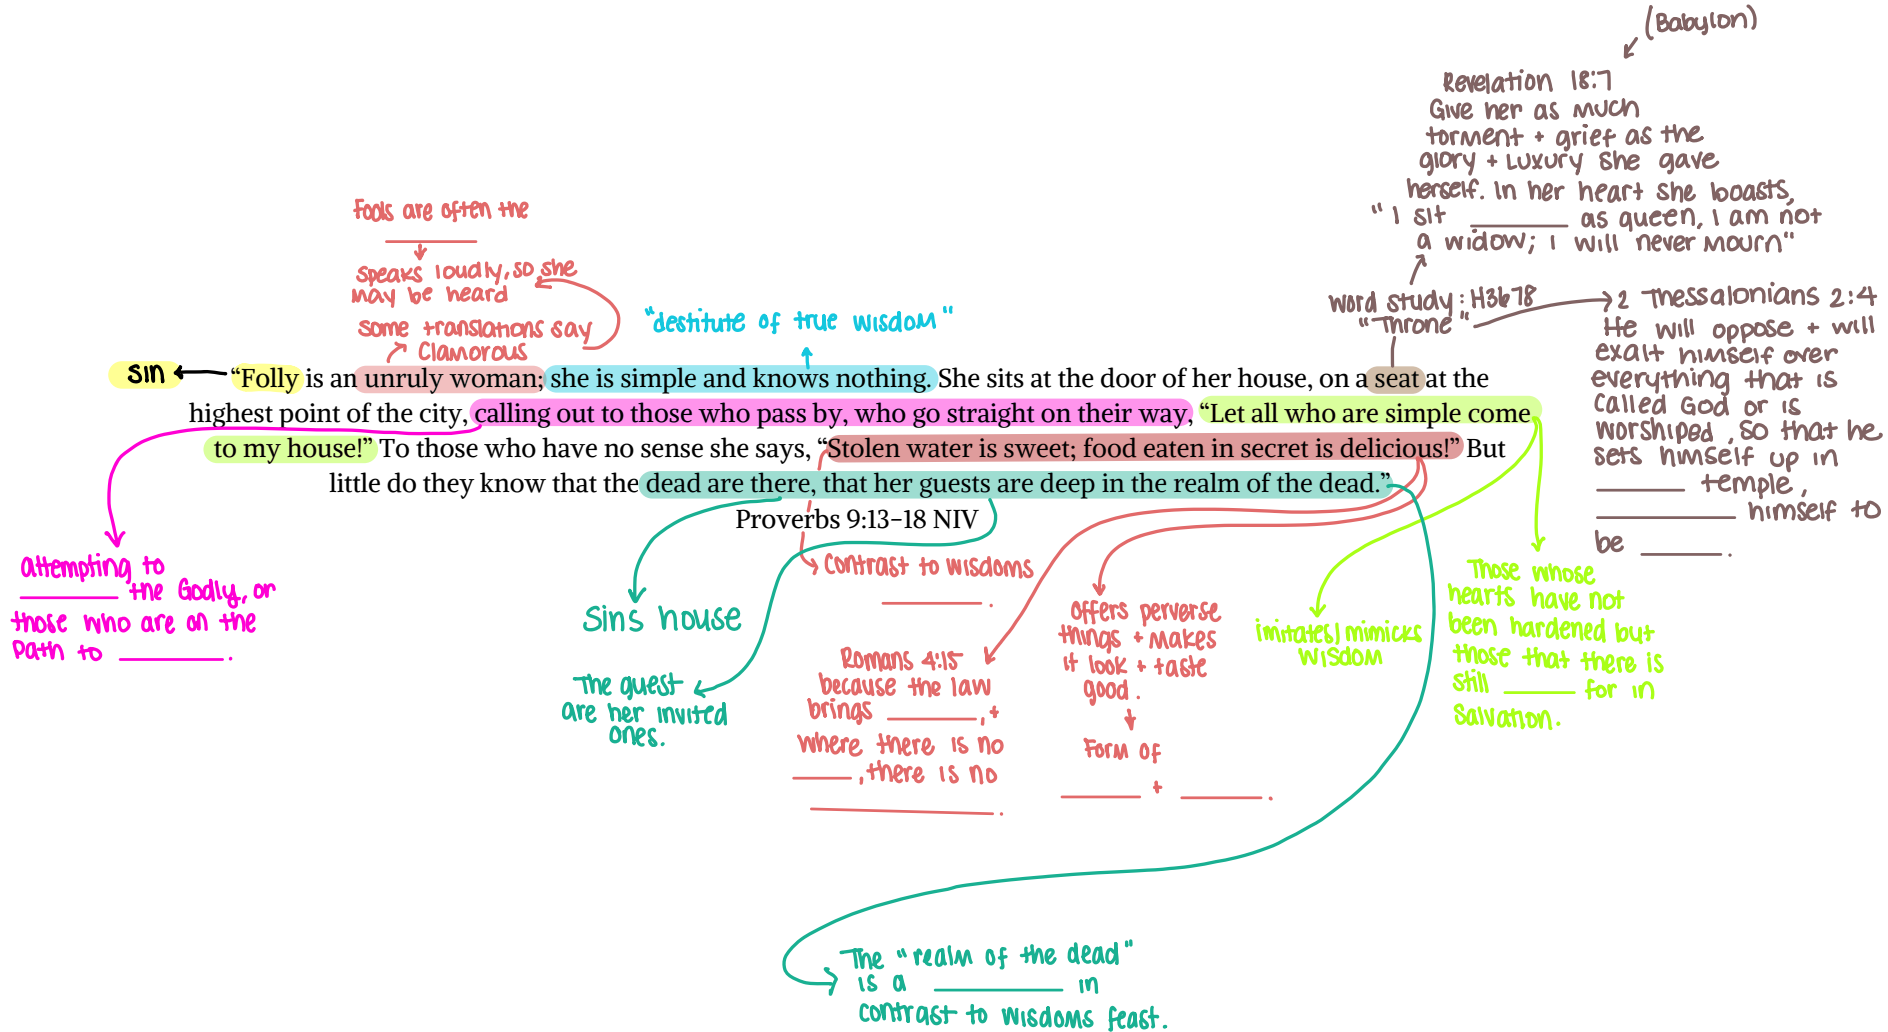 (Babylon)
Revelation 18:7
Give her as much
torment + grief as the
glory + Luxury she gave
herself. In her heart she boasts,
"I sit ________ as queen, I am not
a widow; I will never mourn"
Fools are often the
________
speaks loudly, so she
may be heard
some translations say
Clamorous
"destitute of true wisdom"
word study: H3678
"Throne"
2 Thessalonians 2:4
He will oppose + will
exalt himself over
everything that is
called God or is
worshiped, so that he
sets himself up in
________ temple,
________ himself to
be ________.
sin
“Folly is an unruly woman; she is simple and knows nothing. She sits at the door of her house, on a seat at the
highest point of the city, calling out to those who pass by, who go straight on their way, “Let all who are simple come
to my house!” To those who have no sense she says, “Stolen water is sweet; food eaten in secret is delicious!” But
little do they know that the dead are there, that her guests are deep in the realm of the dead.”
Proverbs 9:13-18 NIV
attempting to
________ the Godly, or
those who are on the
Path to ________.
Sins house
The guest
are her invited
ones.
Contrast to wisdoms
________.
Romans 4:15
because the law
brings ________, +
where there is no
________, there is no
________.
Offers perverse
things + makes
it look + taste
good.
Form of
________ + ________.
imitates/mimicks
wisdom
Those whose
hearts have not
been hardened but
those that there is
still ________ for in
Salvation.
The "realm of the dead"
is a ________ in
contrast to wisdoms feast.